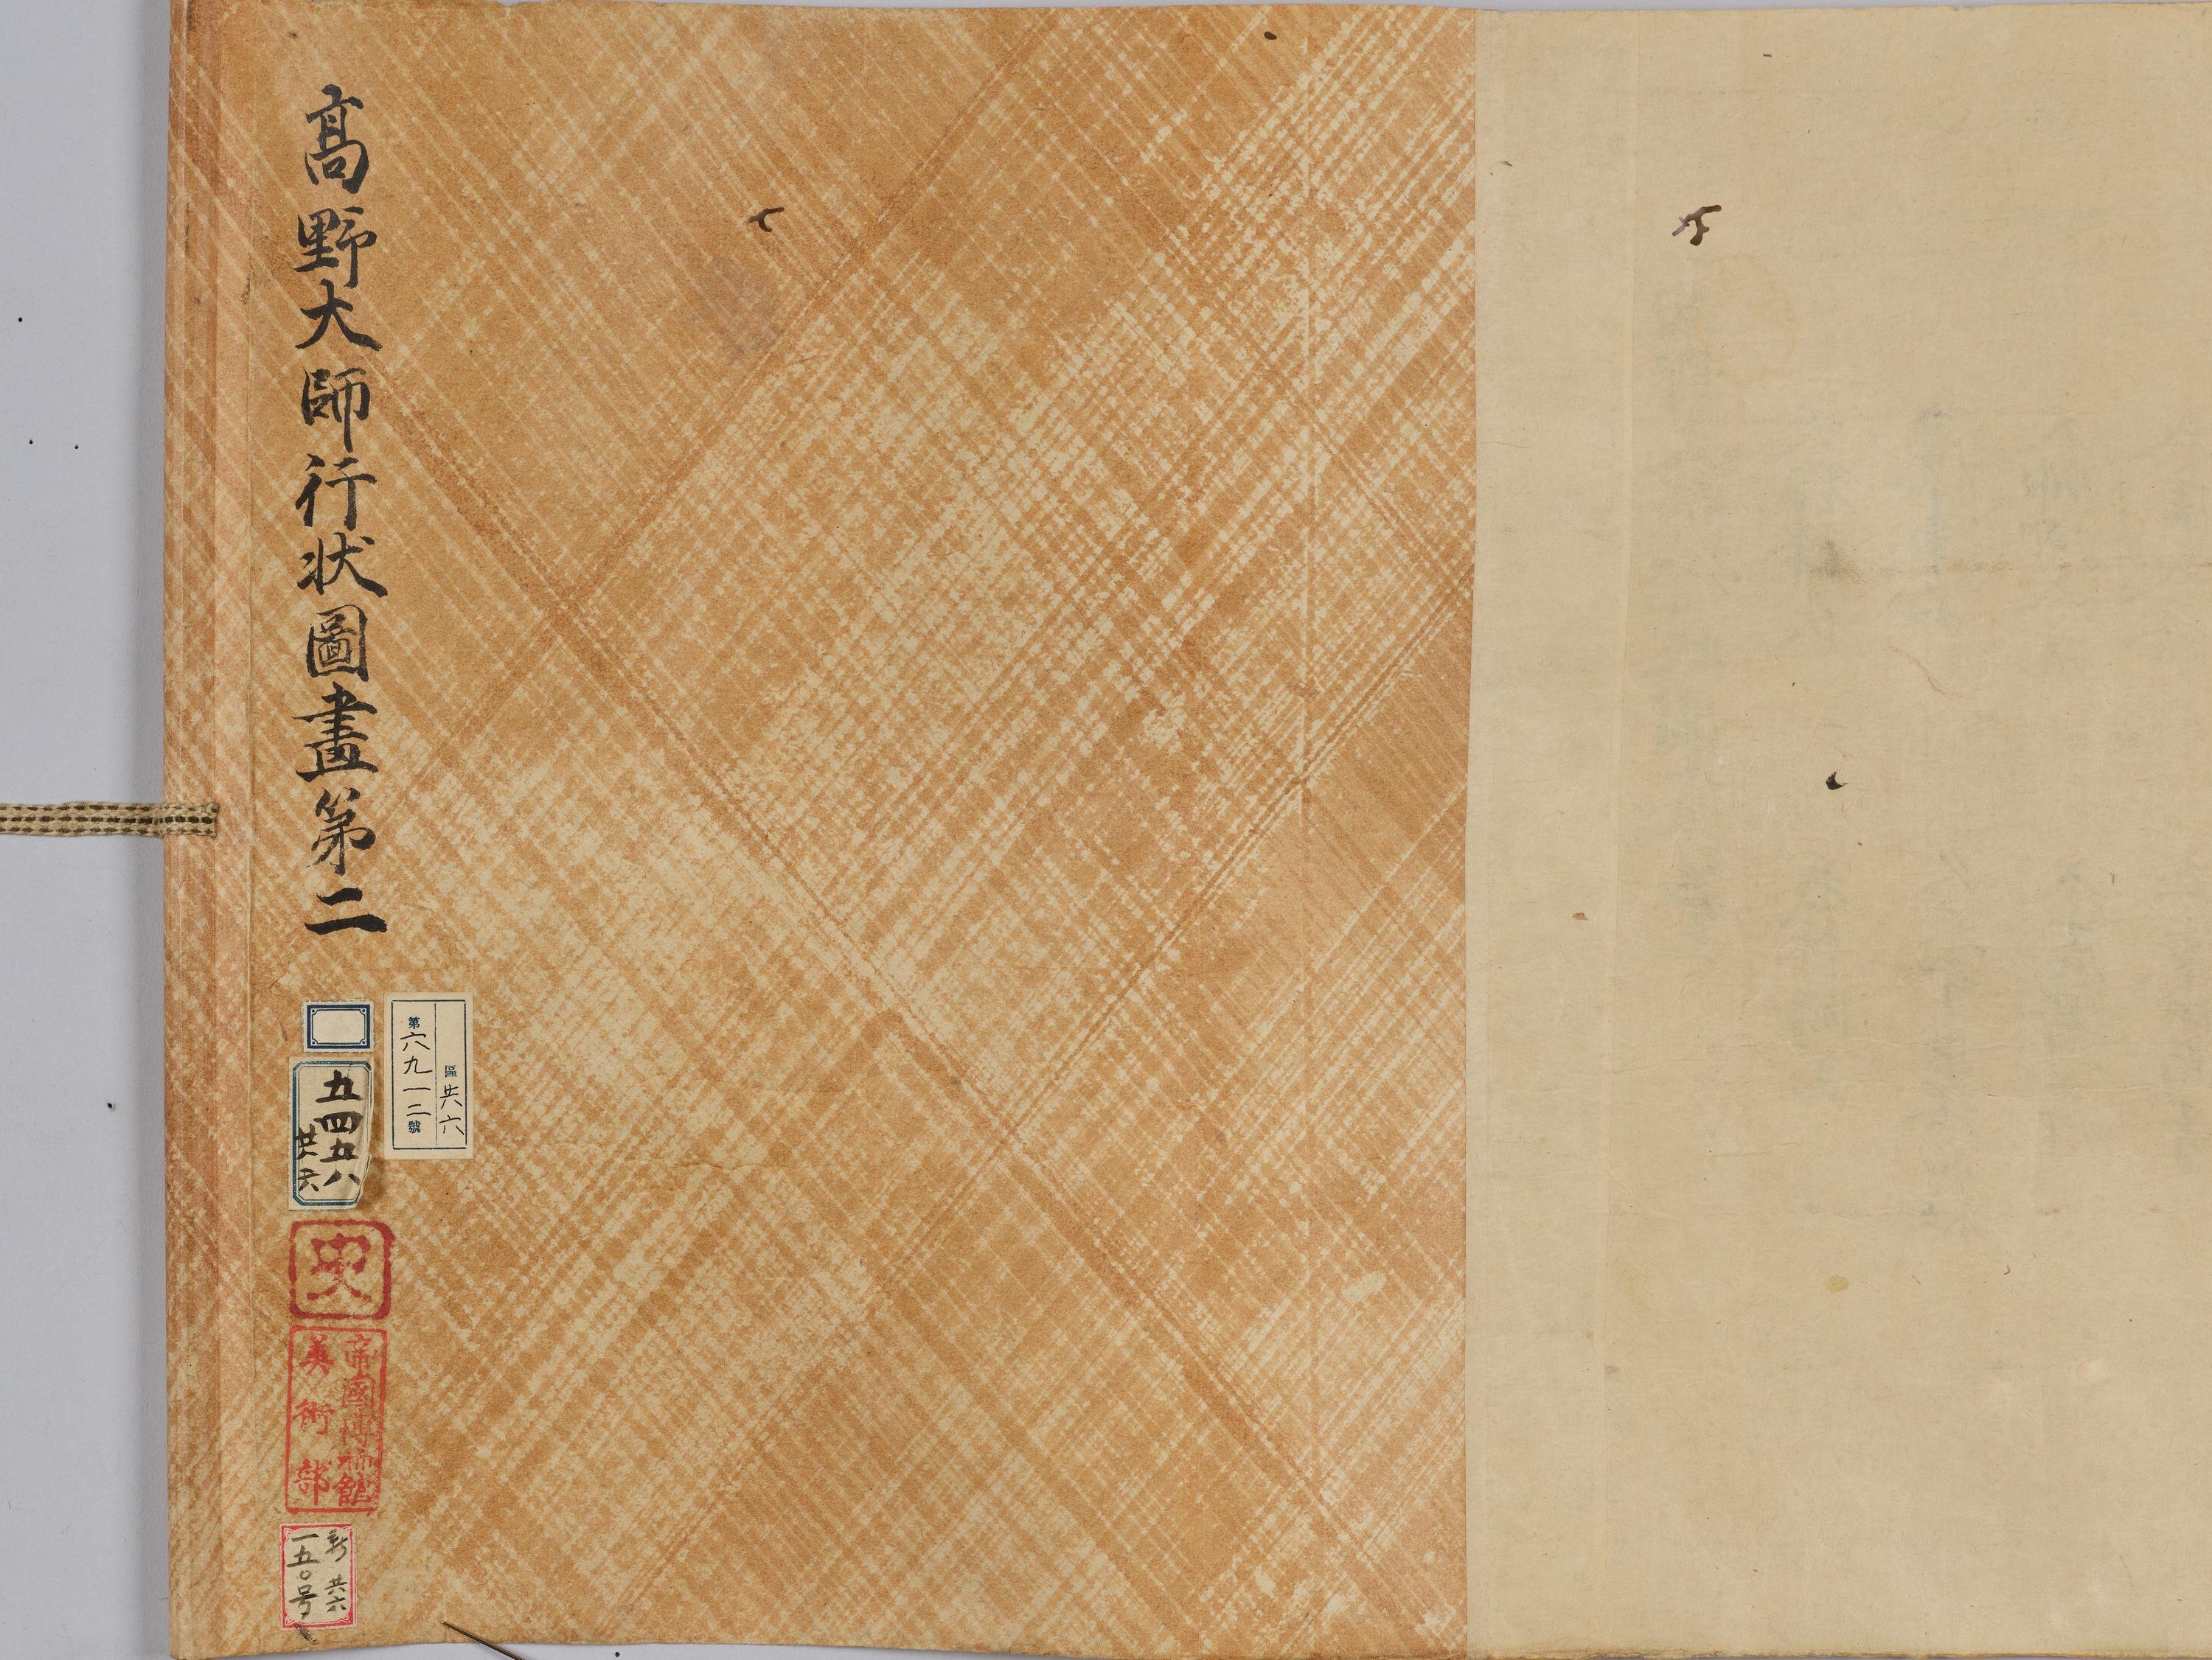 高野大師行状圖畫第二
區共六
第六九一二號
五四五八
共六
史
帝國博物館
美術部
新共六
一五〇号